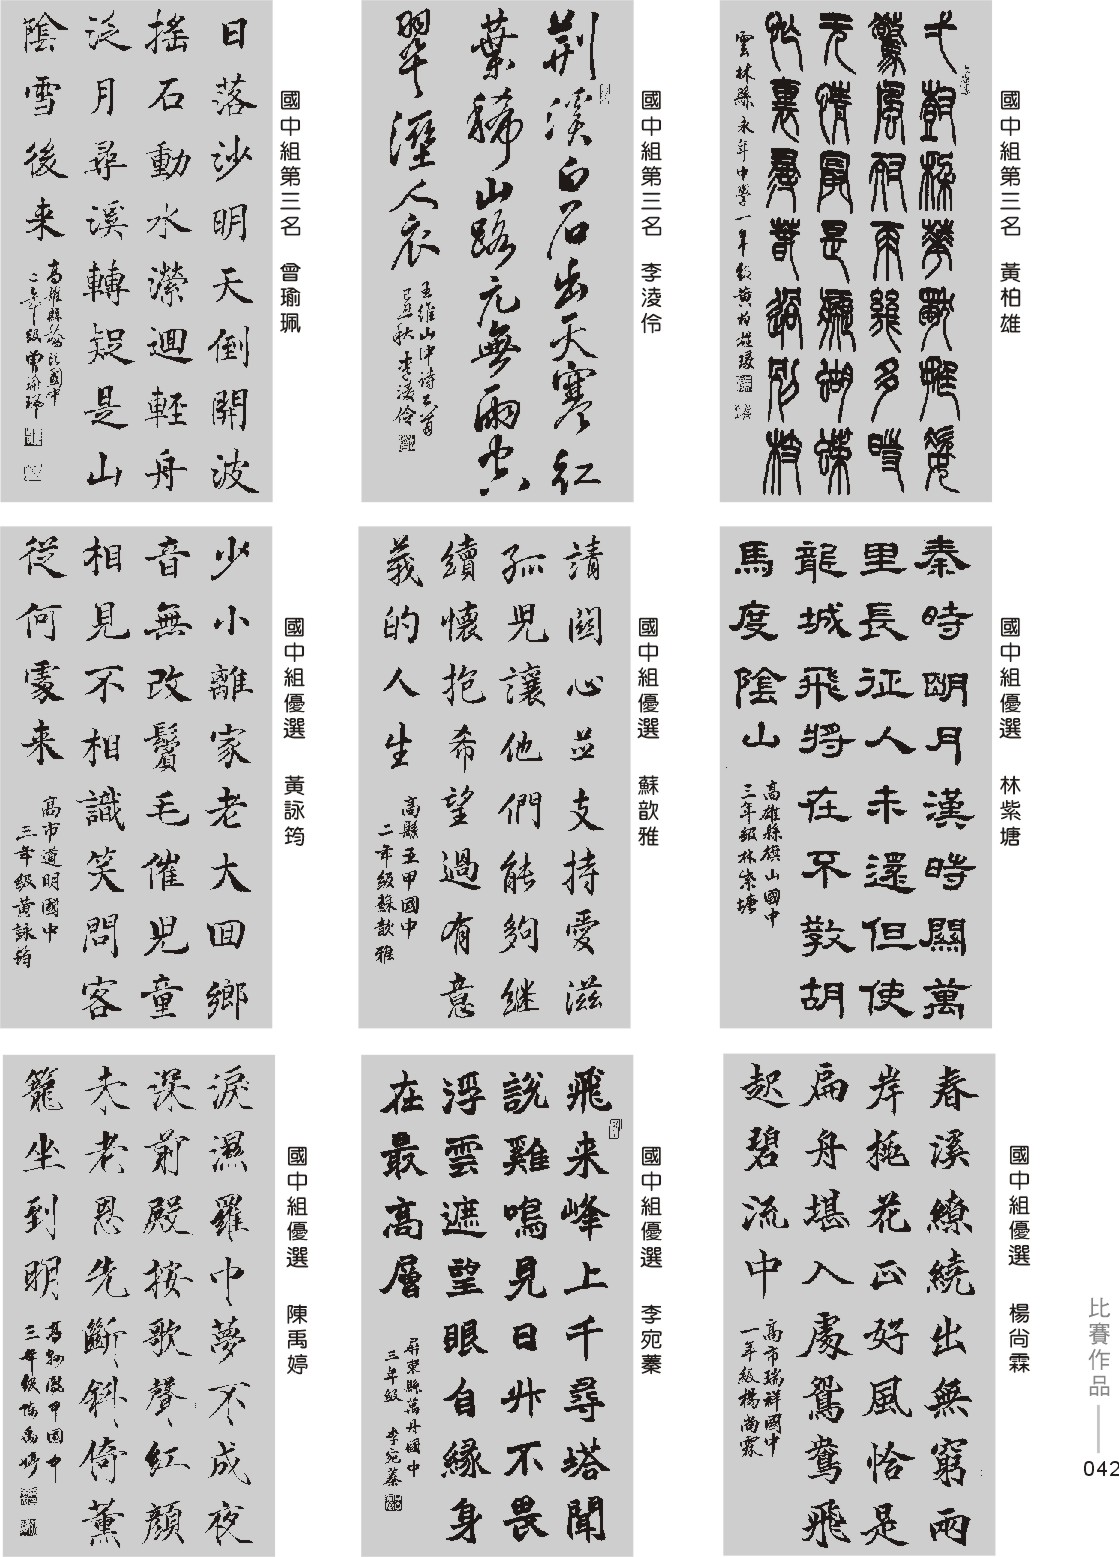 驚風耐雨幾多時
无情最是癡蝴蝶
忙裏尋春過別枝
雲林縣永年中學一年級黃柏雄
國中組第三名 黃柏雄
荆溪白石出天寒紅
葉稀山路元無雨空
翠溼人衣
王維山中詩一首
己丑秋 李淩伶
國中組第三名 李淩伶
日落沙明天倒開波
搖石動水瀠迴輕舟
泛月尋溪轉疑是山
陰雪後来
高雄縣 國中
二年級曾瑜珮
國中組第三名 曾瑜珮
秦時明月漢時關萬
里長征人未還但使
龍城飛將在不敎胡
馬度陰山
高雄縣旗山國中
三年級林紫塘
國中組優選 林紫塘
請關心並支持愛滋
孤兒讓他們能夠继
續懷抱希望過有意
義的人生
高縣五甲國中
二年級蘇歆雅
國中組優選 蘇歆雅
少小離家老大回鄉
音無改鬢毛催兒童
相見不相識笑問客
從何處来
高市道明國中
三年級黃詠筠
國中組優選 黃詠筠
春溪繚繞出無窮兩
岸桃花正好風恰是
扁舟堪入處鴛鴦飛
起碧流中
高市瑞祥國中
一年級楊尚霖
國中組優選 楊尚霖
飛来峰上千尋塔聞
說雞鳴見日昇不畏
浮雲遮望眼自緣身
在最高層
屏東縣萬丹國中
三年級 李宛蓁
國中組優選 李宛蓁
淚濕羅巾夢不成夜
深前殿按歌聲紅顏
未老恩先斷斜倚薰
籠坐到明
三年級陳禹婷
國中組優選 陳禹婷
比賽作品
042